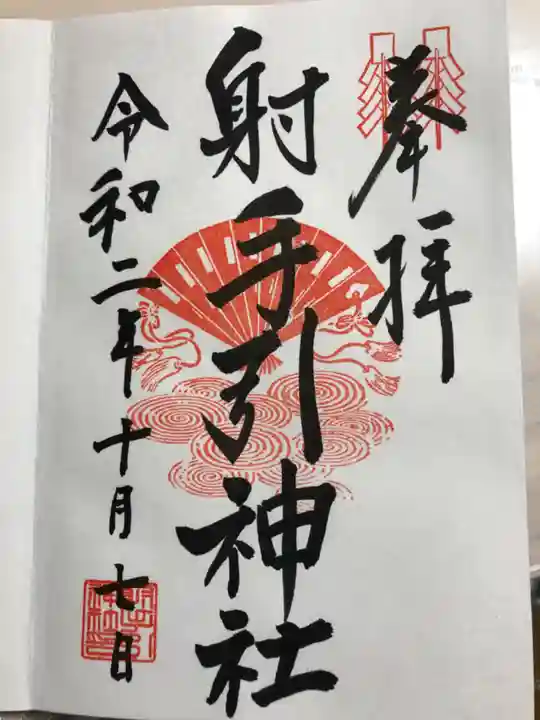 奉拝
射手引神社
令和二年十月七日